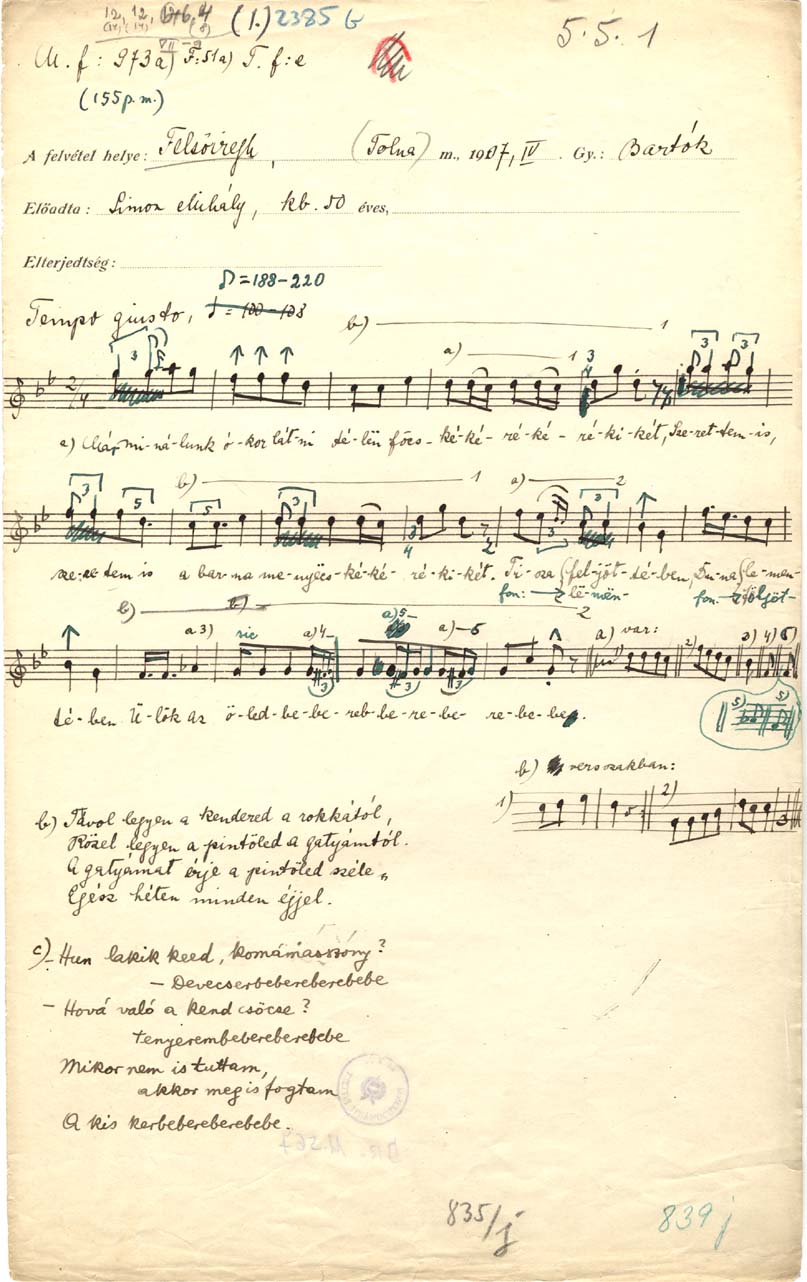 (1.) 2385 G
5.5.1
M. f: 973a) F: 51a) T. f: e
(155 p. m.)
A felvétel helye: Felsőiregh, (Tolna) m., 1907, IV. Gy.: Bartók
Előadta: Simon Mihály, kb. 50 éves,
Elterjedtség:
♪ = 188-220
Tempo giusto,
b) 1
a) 1
a) Már mi-ná-lunk ó-kor lát-ni dé-lü főcs-ké-ké-ré-ké-ré-ki-két, Sze-ret-tem is,
b) 1 a) 2
sze-re-tem is a bar-na me-nyëcs-ké-ké-ré-ki-két. Ti-sza fel-jöt-té-ben, Du-na le-men-
fon: lë-mën- fon. följöt-
b) 2
a3) sic a)4 a)5 a)6 a) var:
2) 3) 4) 6)
5) 5)
té-ben Ü-lök az ö-led-be-be-reb-be-re-be re-be-be.
b) versszakban:
1) 2)
b) Távol legyen a kendered a rokkától,
Közel legyen a pintöled a gatyámtól.
A gatyámat érje a pintöled széle„
Egész héten minden éjjel.
c) - Hun lakik keed, komámasszony?
- Devecserbebereberebebe
- Hová való a kend csöcse?
tenyerembebereberebebe
Mikor nem is tuttam,
akkor megis fogtam
A kis kerbebereberebebe.
835/j
839 j